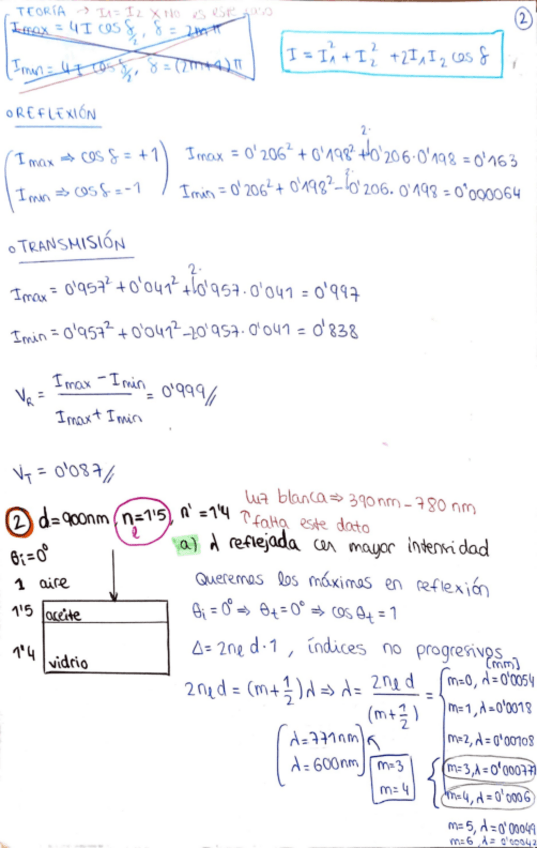 TEORÍA → I1 = I2 X NO es este caso
②
Imax = 4I cos δ/2, δ = 2mπ
Imin = 4I cos δ/2, δ = (2m+1)π
I = I1² + I2² + 2I1I2 cos δ
o REFLEXIÓN
Imax ⇒ cos δ = +1
Imin ⇒ cos δ = -1
2·
Imax = 0'206² + 0'198² + 0'206·0'198 = 0'163
Imin = 0'206² + 0'198² - 0'206·0'198 = 0'000064
o TRANSMISIÓN
2·
Imax = 0'957² + 0'041² + 0'957·0'041 = 0'997
Imin = 0'957² + 0'041² - 20'957·0'041 = 0'838
VR = (Imax - Imin)/(Imax + Imin) = 0'999//
VT = 0'087//
② d = 900nm, n = 1'5, n' = 1'4
l
luz blanca ⇒ 390nm - 780 nm
↑ falta este dato
a) λ reflejada con mayor intensidad
θi = 0°
1 aire
1'5 aceite
1'4 vidrio
Queremos los máximos en reflexión
θi = 0° ⇒ θt = 0° ⇒ cos θt = 1
Δ = 2nl d·1, índices no progresivos
[mm]
2nl d = (m + 1/2) λ ⇒ λ = 2nl d/(m + 1/2) =
m=0, λ=0'0054
m=1, λ=0'0018
m=2, λ=0'00108
m=3, λ=0'00077
m=4, λ=0'0006
m=5, λ=0'00049
m=6, λ=0'00042
λ = 771nm
λ = 600nm
m=3
m=4